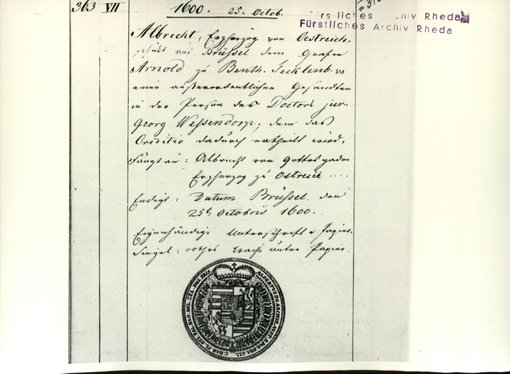 363 VII 1600. 25. Octob.
Fürstliches Archiv Rheda
Fürstliches Archiv Rheda
Albrecht, Erzherzog von Oestreich,
schickt aus Brüssel dem Grafen
Arnold zu Benth. Tecklenb. ys
einen außerordentlichen Gesandten
in der Person des Doctors jur.
Georg Wessendorp, dem das
Creditiv dadurch ertheilt wird.
Fängt an: Albrecht von Gottes gnaden
Erzherzog zu Ostreich ....
Endigt: Datum Brüssel den
25t Octobris 1600.
Eigenhändige Unterschrift a. Papier.
Siegel: rothes Wachs unter Papier.